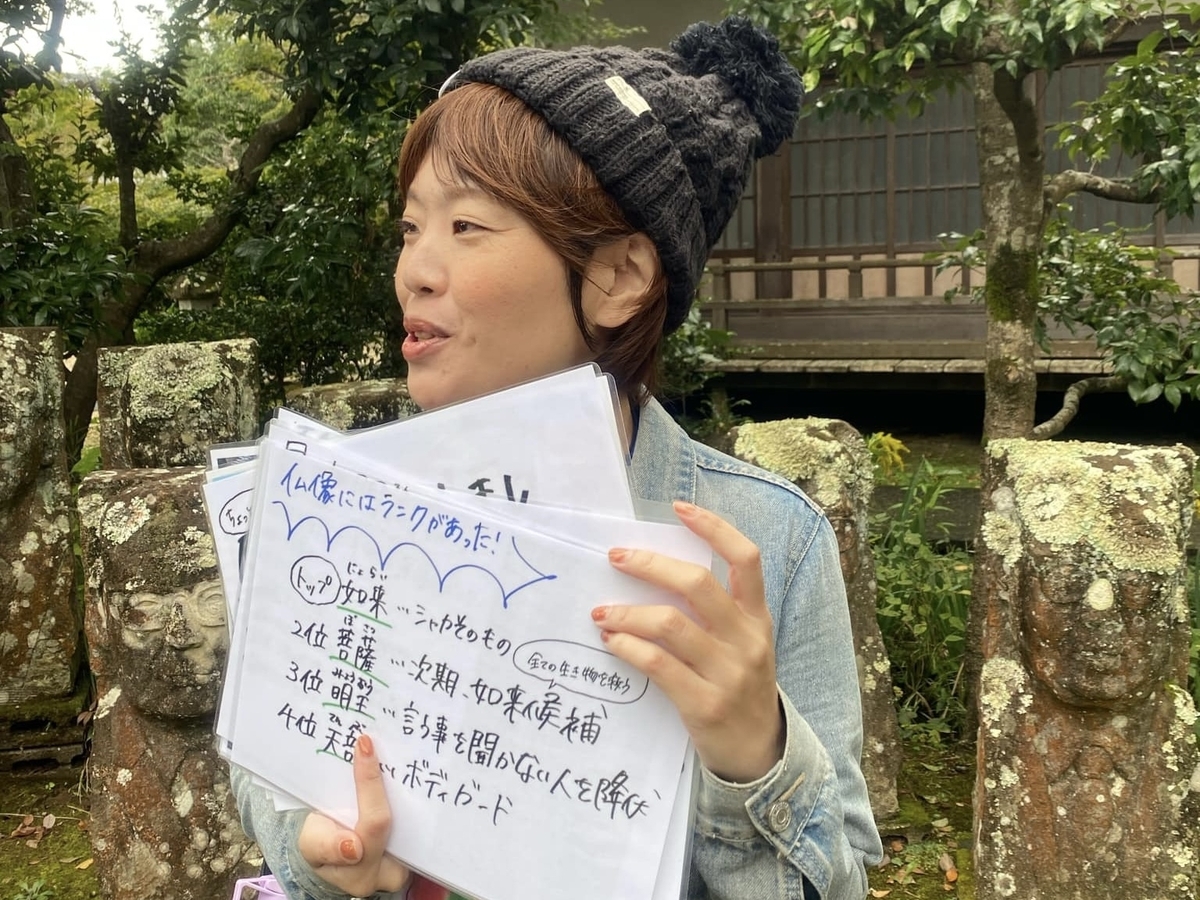 仏像にはランクがあった!
トップ 如来 … シャカそのもの
にょらい
全ての生き物を救う
2位 菩薩 … 次期、如来候補
ぼさつ
3位 明王 … 言う事を聞かない人を降伏
みょうおう
4位 天部 … ボディガード